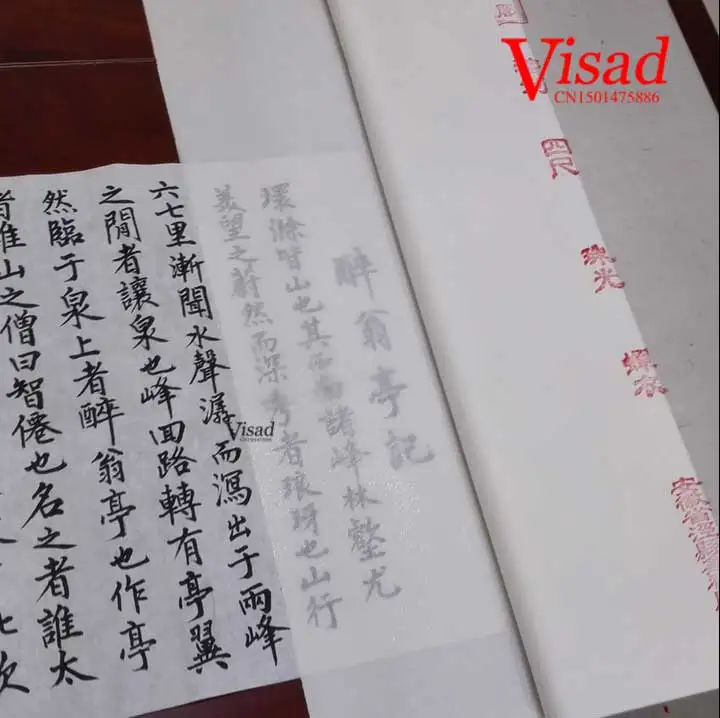 Visad
CN1501475886
四尺
珠光
蟬衣
安徽省涇縣
醉翁亭記
環滁皆山也其西南諸峰林壑尤
美望之蔚然而深秀者琅琊也山行
六七里漸聞水聲潺而瀉出于兩峰
之間者讓泉也峰回路轉有亭翼
然臨于泉上者醉翁亭也作亭
者誰山之僧曰智僊也名之者誰太
Visad